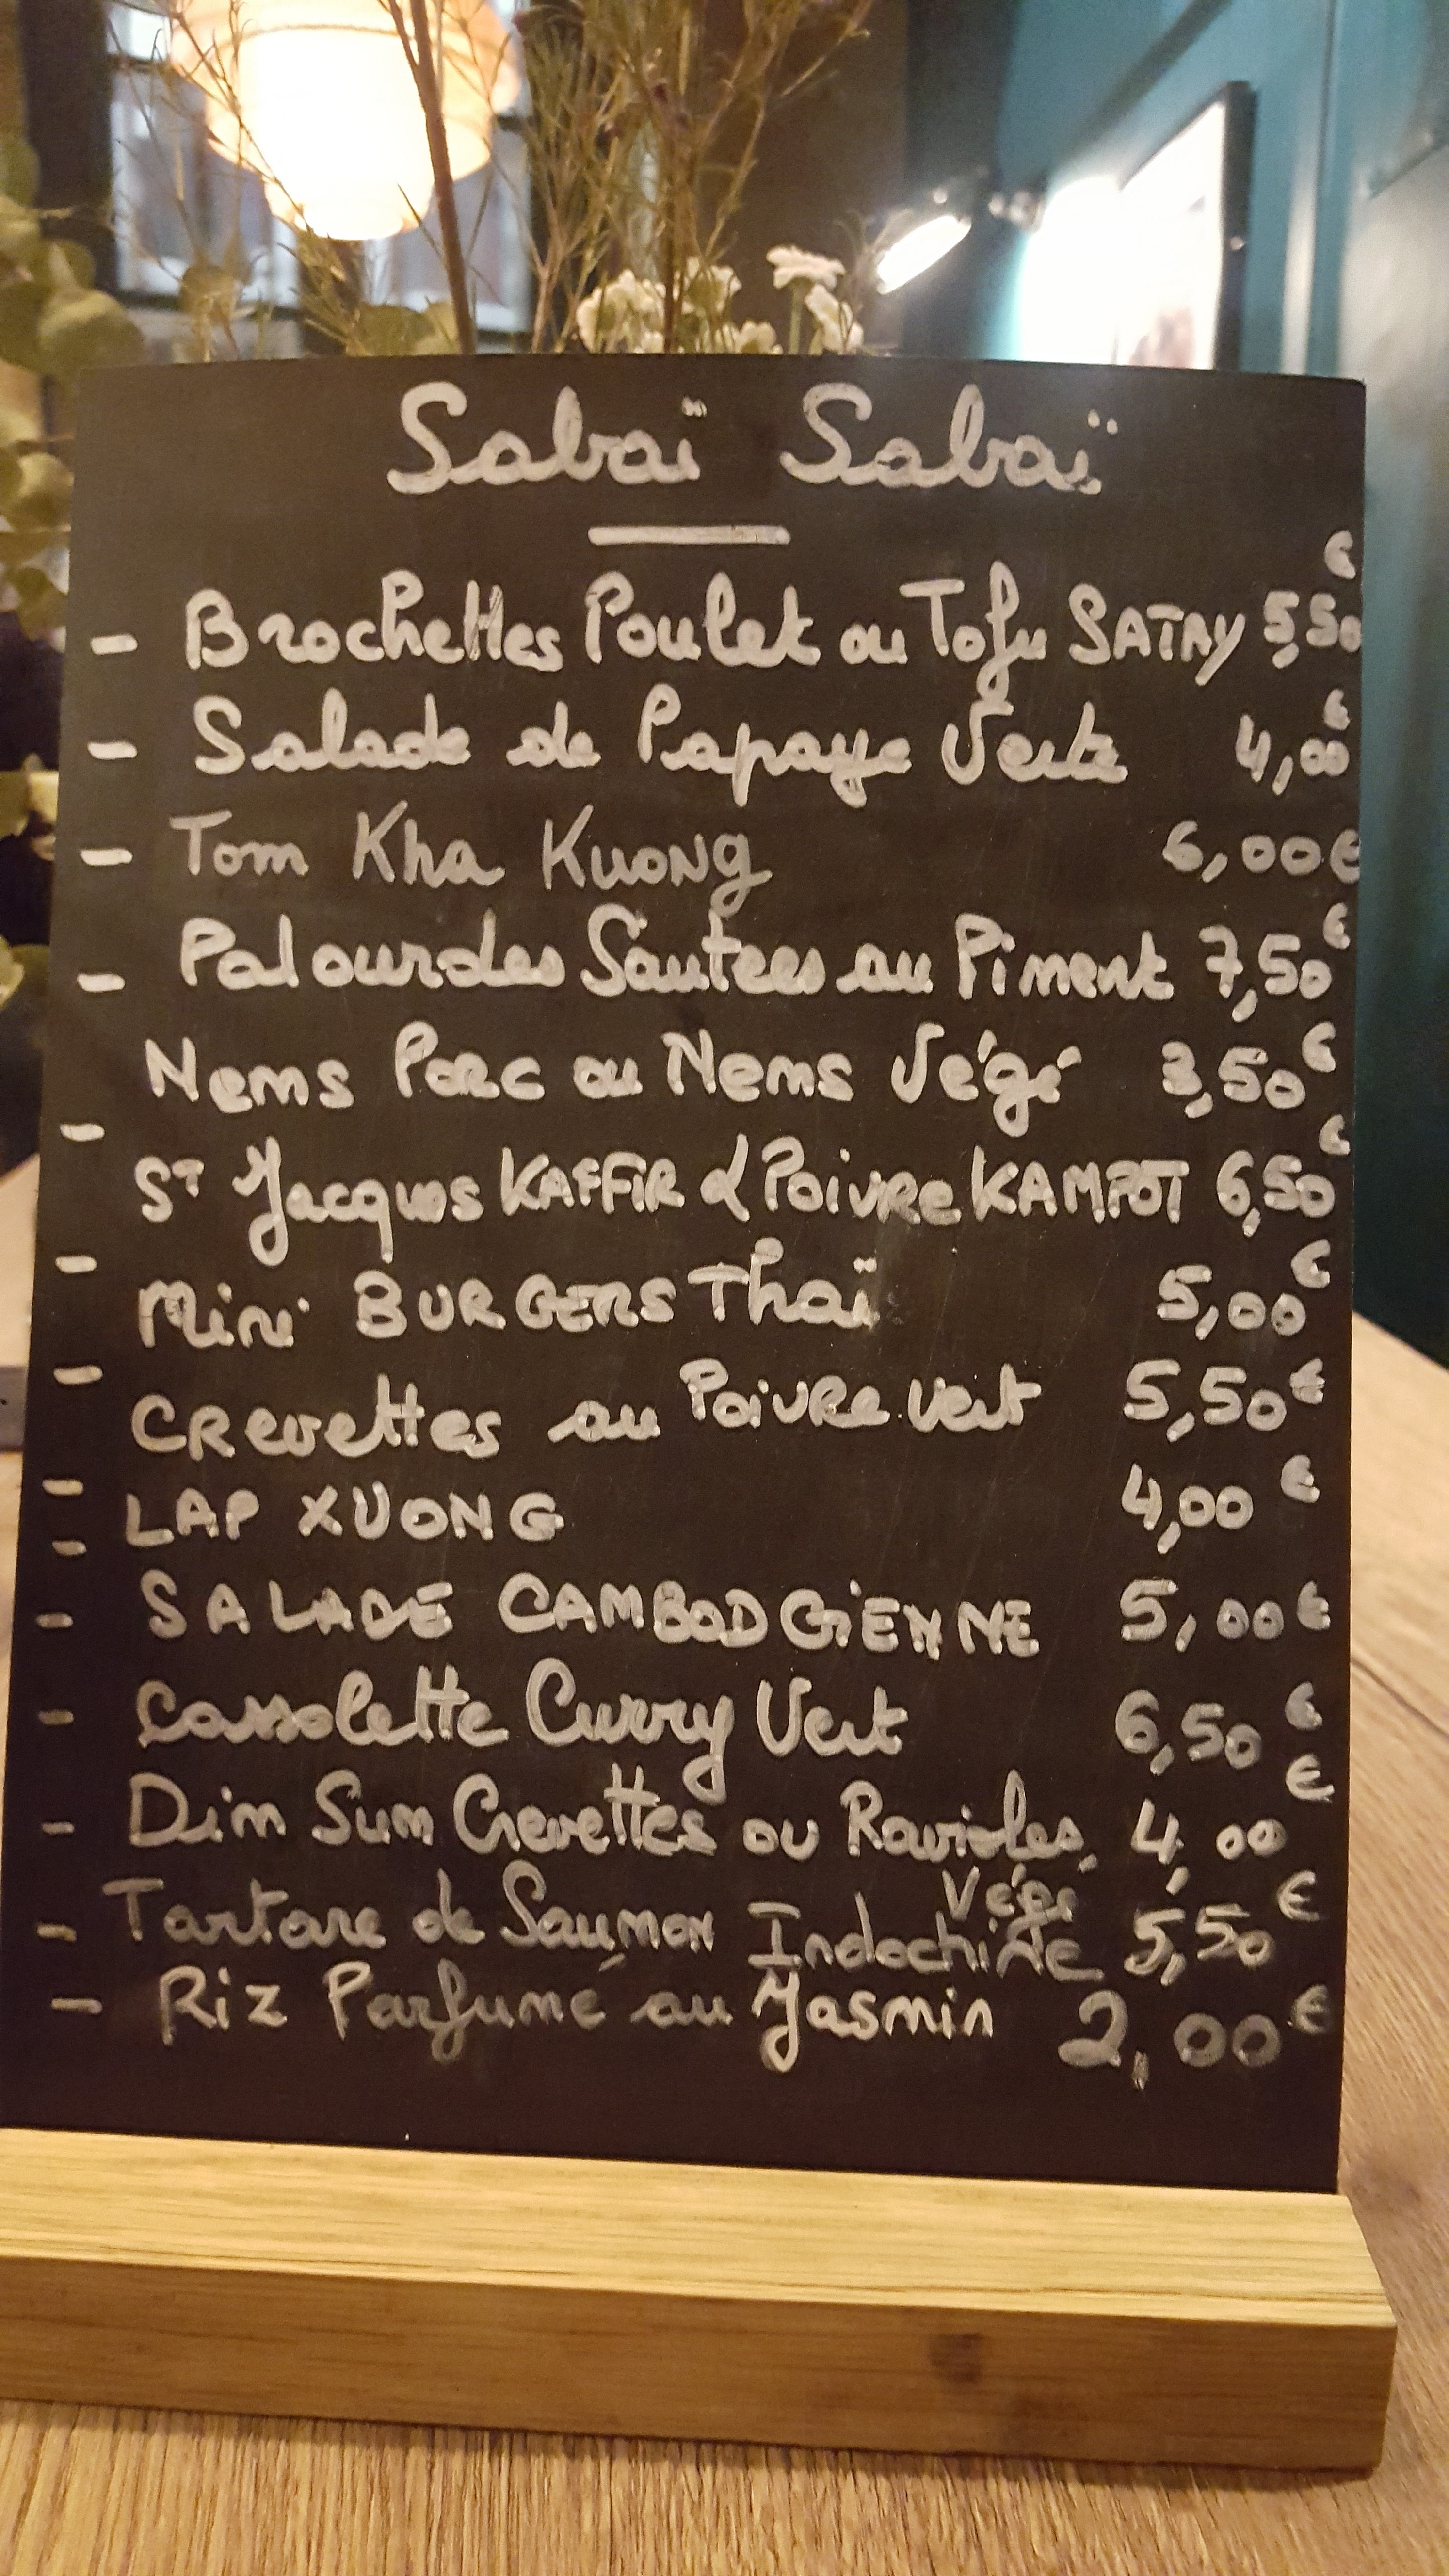 Sabaï Sabaï
- Brochettes Poulet ou Tofu SATAY 5,50€
- Salade de Papaye Verte 4,00€
- Tom Kha Kuong 6,00€
- Palourdes Sautees au Piment 7,50€
- Nems Porc ou Nems Végé 3,50€
- St Jacques KAFFIR & Poivre KAMPOT 6,50€
- Mini BURGERS Thaï 5,00€
- Crevettes au Poivre vert 5,50€
- LAP XUONG 4,00€
- SALADE CAMBODGIENNE 5,00€
- Cassolette Curry Vert 6,50€
- Dim Sum Crevettes ou Ravioles 4,00€
Végé
- Tartare de Saumon Indochine 5,50€
- Riz Parfumé au Jasmin 2,00€